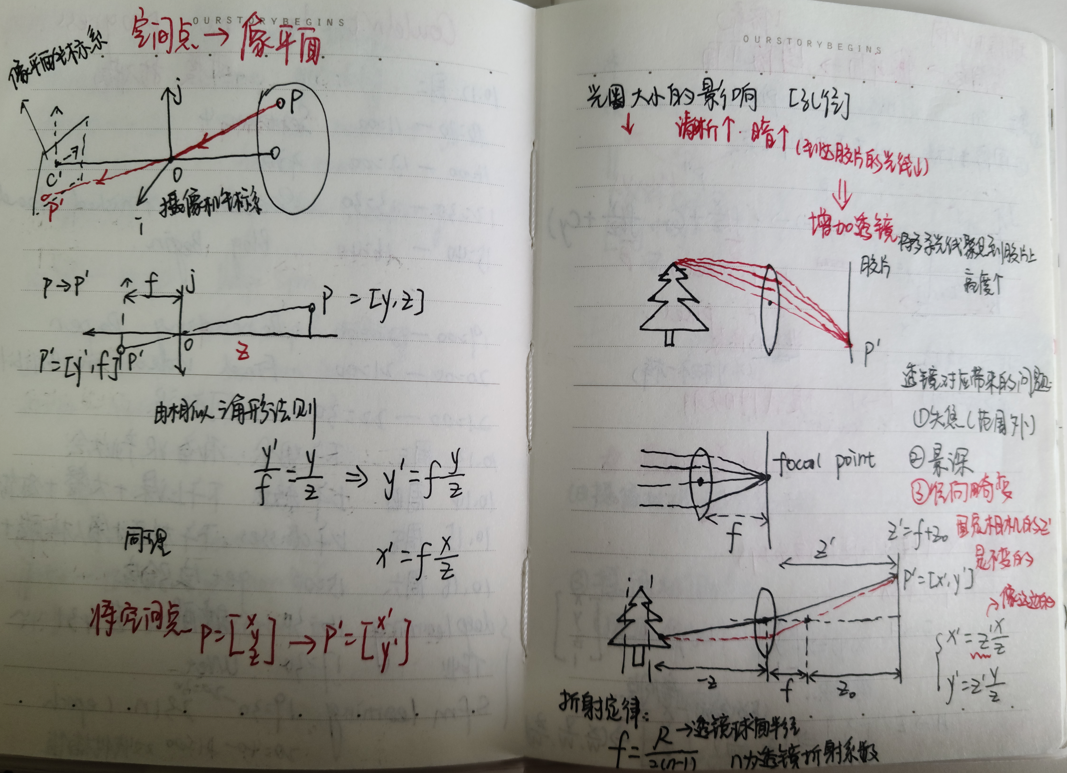 OURSTORYBEGINS
空间点 → 像平面
像平面坐标系
j
P
-f
C'
O
P'
i
摄像机坐标系
P→P'
f
j
P = [y, z]
O
z
P'=[y', f]
P'
由相似三角形法则
y'/f = y/z ⇒ y' = f y/z
同理
x' = f x/z
将空间点 P = [x y z] → P' = [x' y']
OURSTORYBEGINS
光圈大小的影响 [孔径]
↓ 清晰↑ 暗↑ (到达胶片的光线↓)
⇓
增加透镜 将多条光线聚集到胶片上
亮度↑
胶片
P'
透镜对应带来的问题
①失焦(范围外)
②景深
③径向畸变
focal point
f
z' = f+z₀
z'
是不变的
P'=[x', y']
x' = z' x/z
y' = z' y/z
-z
f
z₀
折射定律:
f = R/2(n-1) → 透镜球面半径
n为透镜折射系数